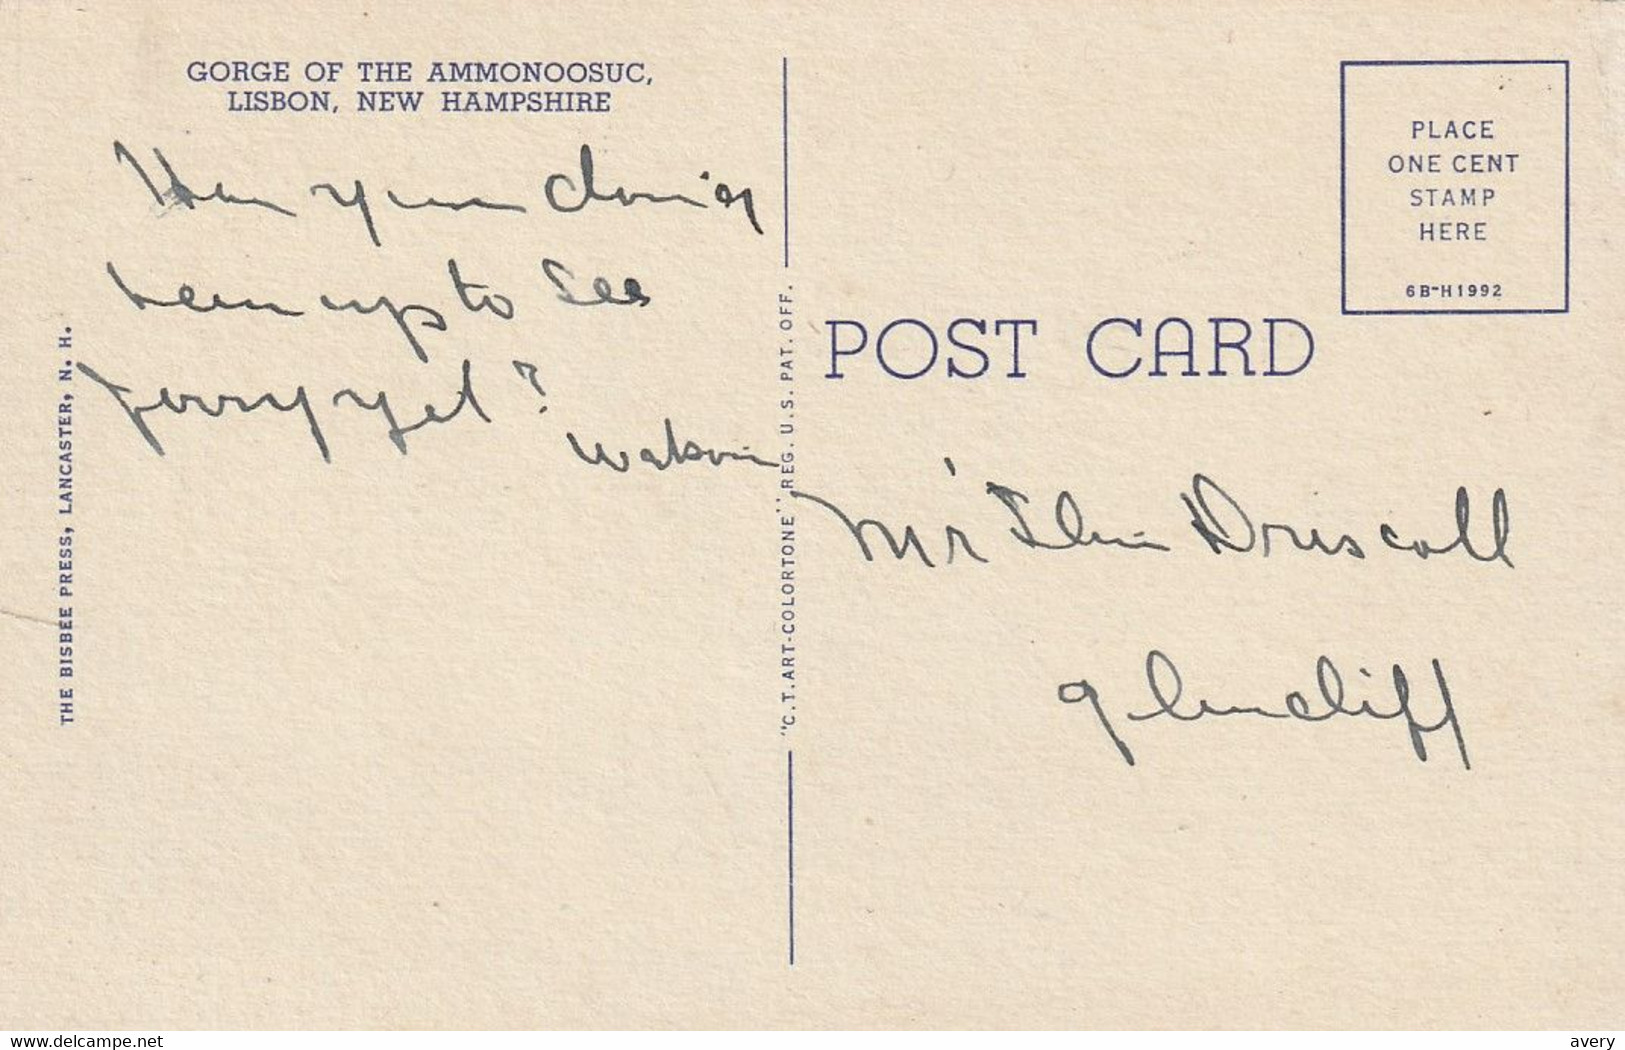 GORGE OF THE AMMONOOSUC,
LISBON, NEW HAMPSHIRE
doing
up to see
Jerry yet?
THE BISBEE PRESS, LANCASTER, N. H.
"C. T. ART-COLORTONE" REG. U.S. PAT. OFF.
PLACE
ONE CENT
STAMP
HERE
6B-H1992
POST CARD
Mr Driscoll
Glencliff
Made with my scanner
avery